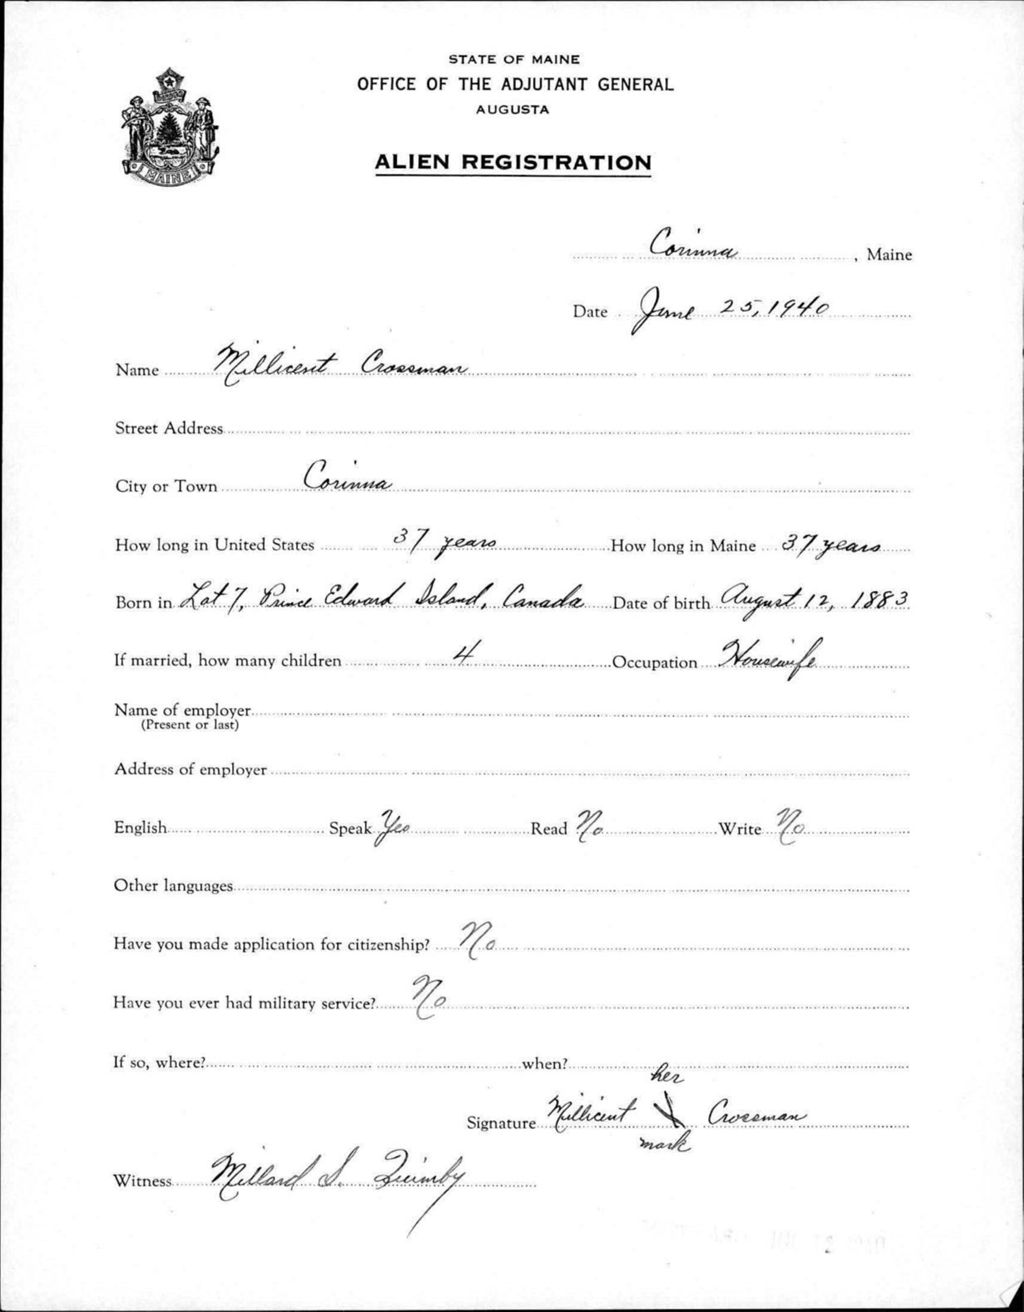 STATE OF MAINE
OFFICE OF THE ADJUTANT GENERAL
AUGUSTA
MAINE
ALIEN REGISTRATION
Corinna, Maine
Date June 25, 1940
Name Millicent Crossman
Street Address
City or Town Corinna
How long in United States 37 years How long in Maine 37 years
Born in Lot 7, Prince Edward Island, Canada Date of birth August 12, 1883
If married, how many children 4 Occupation Housewife
Name of employer
(Present or last)
Address of employer
English Speak Yes Read No Write No
Other languages
Have you made application for citizenship? No
Have you ever had military service? No
If so, where? when?
her
Signature Millicent X Crossman
mark
Witness Millard S. Quimby